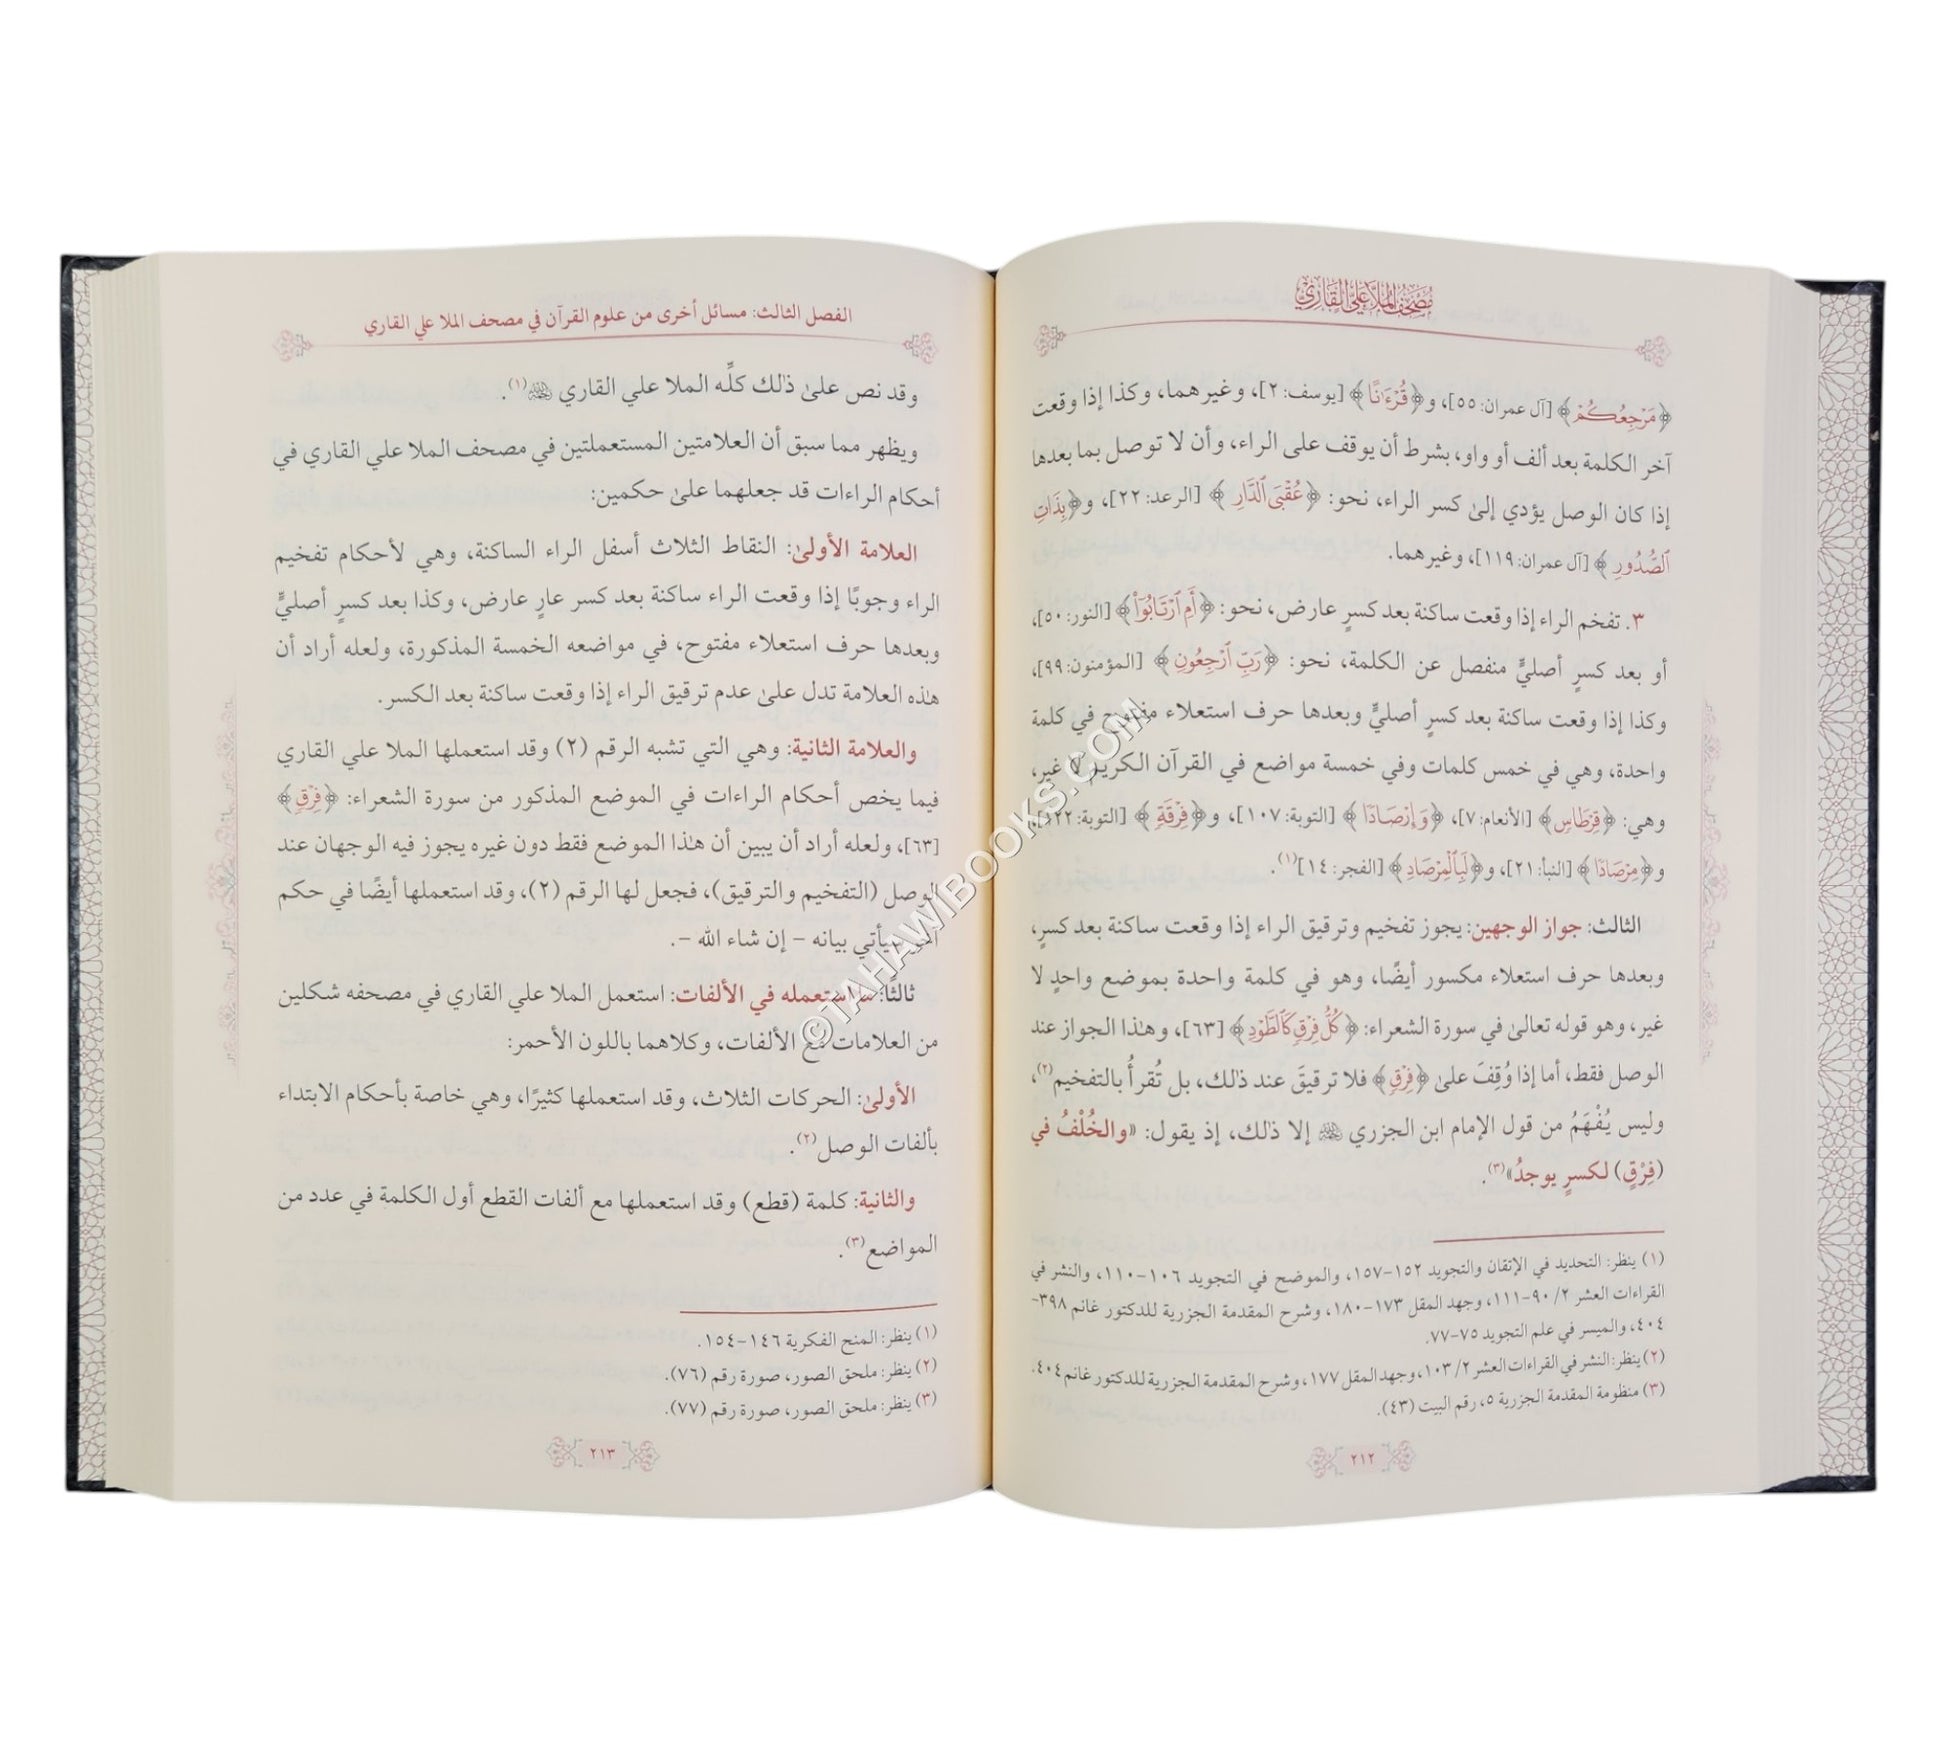 مصحف الملا علي القاري
﴿مَرْجِعُكُمْ﴾ [آل عمران: ٥٥]، و﴿قُرْءَٰنًا﴾ [يوسف: ٢]، وغيرهما، وكذا إذا وقعت
آخر الكلمة بعد ألف أو واو، بشرط أن يوقف على الراء، وأن لا توصل بما بعدها
إذا كان الوصل يؤدي إلىٰ كسر الراء، نحو: ﴿عُقْبَى ٱلدَّارِ﴾ [الرعد: ٢٢]، و﴿بِذَاتِ
ٱلصُّدُورِ﴾ [آل عمران: ١١٩]، وغيرهما.
٣. تفخم الراء إذا وقعت ساكنة بعد كسرٍ عارض، نحو: ﴿أَمِ ٱرْتَابُوٓا۟﴾ [النور: ٥٠]،
أو بعد كسرٍ أصليٍّ منفصل عن الكلمة، نحو: ﴿رَبِّ ٱرْجِعُونِ﴾ [المؤمنون: ٩٩]،
وكذا إذا وقعت ساكنة بعد كسرٍ أصليٍّ وبعدها حرف استعلاء مفتوح في كلمة
واحدة، وهي في خمس كلمات وفي خمسة مواضع في القرآن الكريم لا غير،
وهي: ﴿قِرْطَاسٍ﴾ [الأنعام: ٧]، ﴿وَإِرْصَادًا﴾ [التوبة: ١٠٧]، و﴿فِرْقَةٍ﴾ [التوبة: ١٢٢]،
و﴿مِرْصَادًا﴾ [النبأ: ٢١]، و﴿لَبِٱلْمِرْصَادِ﴾ [الفجر: ١٤](١).
الثالث: جواز الوجهين: يجوز تفخيم وترقيق الراء إذا وقعت ساكنة بعد كسرٍ،
وبعدها حرف استعلاء مكسور أيضًا، وهو في كلمة واحدة بموضع واحدٍ لا
غير، وهو قوله تعالىٰ في سورة الشعراء: ﴿كُلُّ فِرْقٍ كَٱلطَّوْدِ﴾ [٦٣]، وهٰذا الجواز عند
الوصل فقط، أما إذا وُقِفَ علىٰ ﴿فِرْقٍ﴾ فلا ترقيقَ عند ذٰلك، بل تُقرأُ بالتفخيم(٢)،
وليس يُفْهَمُ من قول الإمام ابن الجزري إلا ذٰلك، إذ يقول: «والخُلْفُ في
(فِرْقٍ) لكسرٍ يوجدُ»(٣).
(١) ينظر: التحديد في الإتقان والتجويد ١٥٢-١٥٧، والموضح في التجويد ١٠٦-١١٠، والنشر في
القراءات العشر ٢/ ٩٠-١١١، وجهد المقل ١٧٣-١٨٠، وشرح المقدمة الجزرية للدكتور غانم ٣٩٨-
٤٠٤، والميسر في علم التجويد ٧٥-٧٧.
(٢) ينظر: النشر في القراءات العشر ٢/ ١٠٣، وجهد المقل ١٧٧، وشرح المقدمة الجزرية للدكتور غانم ٤٠٤.
(٣) منظومة المقدمة الجزرية ٥، رقم البيت (٤٣).
٢١٢
الفصل الثالث: مسائل أخرى من علوم القرآن في مصحف الملا علي القاري
وقد نص علىٰ ذٰلك كلِّه الملا علي القاري (١).
ويظهر مما سبق أن العلامتين المستعملتين في مصحف الملا علي القاري في
أحكام الراءات قد جعلهما علىٰ حكمين:
العلامة الأولىٰ: النقاط الثلاث أسفل الراء الساكنة، وهي لأحكام تفخيم
الراء وجوبًا إذا وقعت الراء ساكنة بعد كسر عارٍ عارض، وكذا بعد كسرٍ أصليٍّ
وبعدها حرف استعلاء مفتوح، في مواضعه الخمسة المذكورة، ولعله أراد أن
هٰذه العلامة تدل علىٰ عدم ترقيق الراء إذا وقعت ساكنة بعد الكسر.
والعلامة الثانية: وهي التي تشبه الرقم (٢) وقد استعملها الملا علي القاري
فيما يخص أحكام الراءات في الموضع المذكور من سورة الشعراء: ﴿فِرْقٍ﴾
[٦٣]، ولعله أراد أن يبين أن هٰذا الموضع فقط دون غيره يجوز فيه الوجهان عند
الوصل (التفخيم والترقيق)، فجعل لها الرقم (٢)، وقد استعملها أيضًا في حكم
سيأتي بيانه – إن شاء الله –.
ثالثًا: ما استعمله في الألفات: استعمل الملا علي القاري في مصحفه شكلين
من العلامات مع الألفات، وكلاهما باللون الأحمر:
الأولىٰ: الحركات الثلاث، وقد استعملها كثيرًا، وهي خاصة بأحكام الابتداء
بألفات الوصل(٢).
والثانية: كلمة (قطع) وقد استعملها مع ألفات القطع أول الكلمة في عدد من
المواضع(٣).
(١) ينظر: المنح الفكرية ١٤٦-١٥٤.
(٢) ينظر: ملحق الصور، صورة رقم (٧٦).
(٣) ينظر: ملحق الصور، صورة رقم (٧٧).
٢١٣
©TAHAWIBOOKS.COM